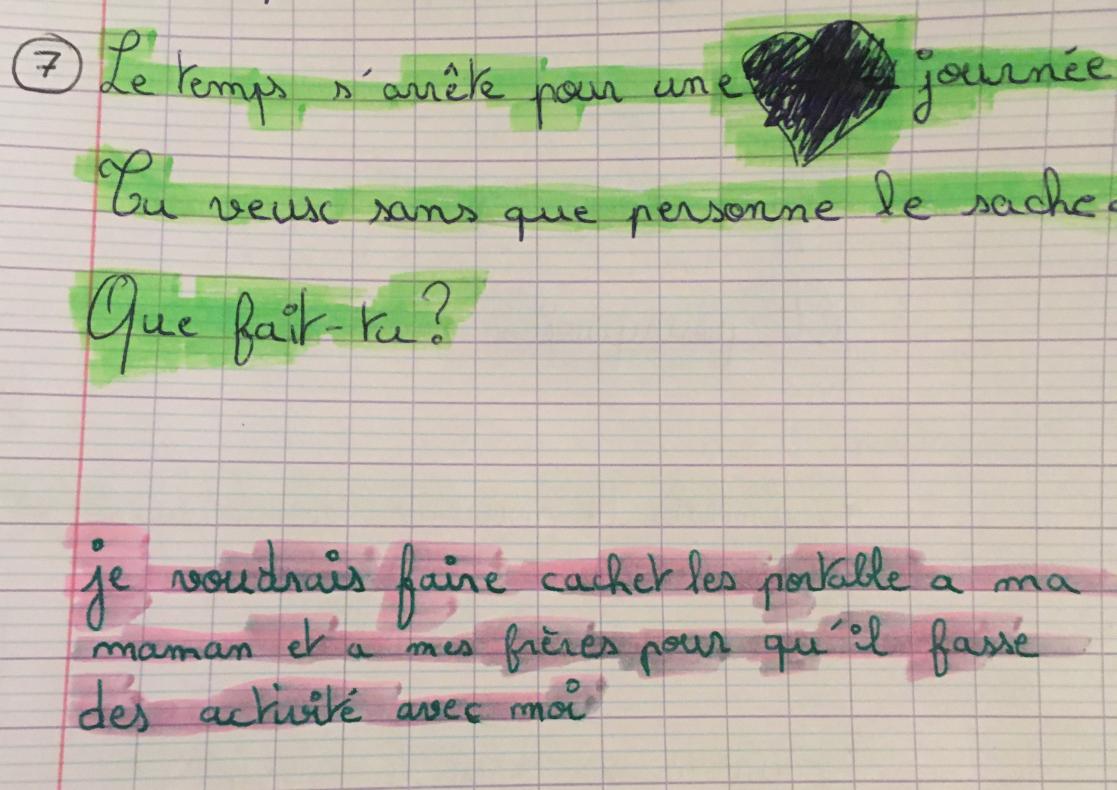 7 Le temps s'arrête pour une journée
Tu veux sans que personne le sache.
Que fait-tu?
je voudrais faire cacher les portable a ma
maman et a mes frères pour qu'il fasse
des activité avec moi